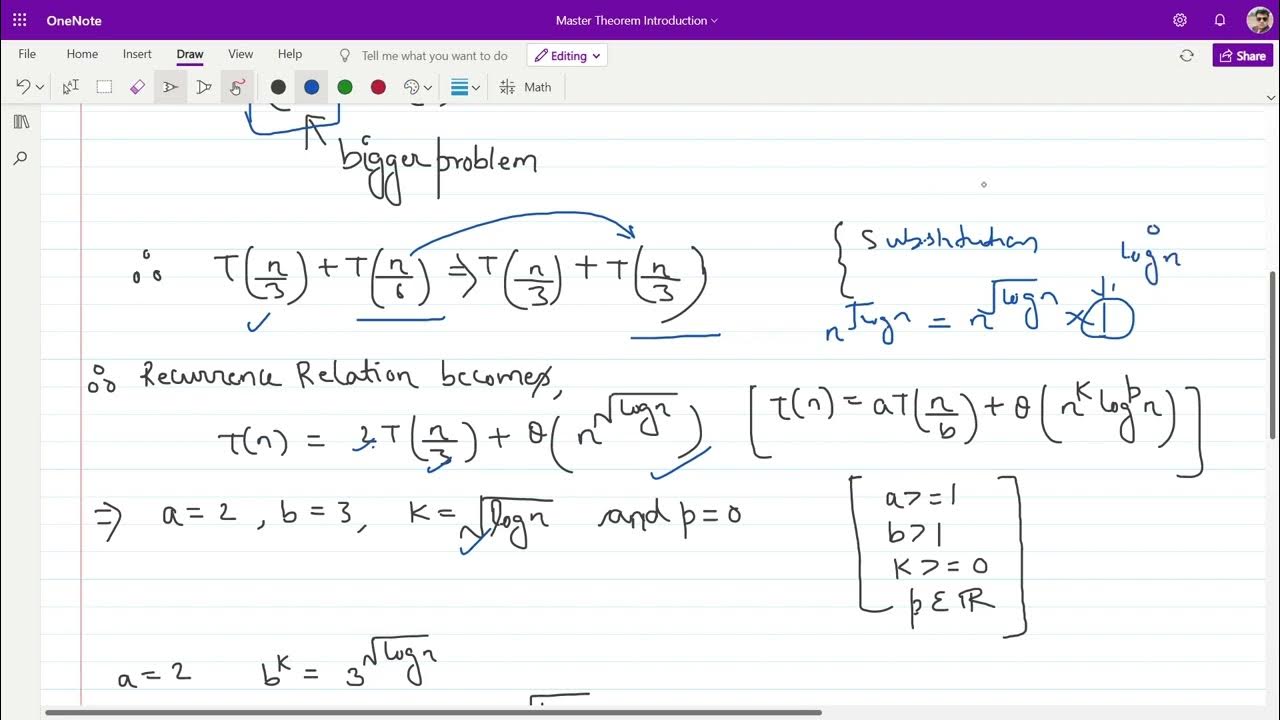 OneNote
Master Theorem Introduction
File Home Insert Draw View Help Tell me what you want to do Editing
Share
Math
bigger problem
∴ T(n/3) + T(n/6) ⇒ T(n/3) + T(n/3)
{ Substitution
log⁰n
n^√logn = n^√logn × 1
∴ Recurrence Relation becomes,
T(n) = 2T(n/3) + θ(n^√logn)
[T(n) = aT(n/b) + θ(n^k log^p n)]
⇒ a = 2 , b = 3, K = √logn and p = 0
a >= 1
b > 1
K >= 0
p ∈ ℝ
a = 2 b^K = 3^√logn